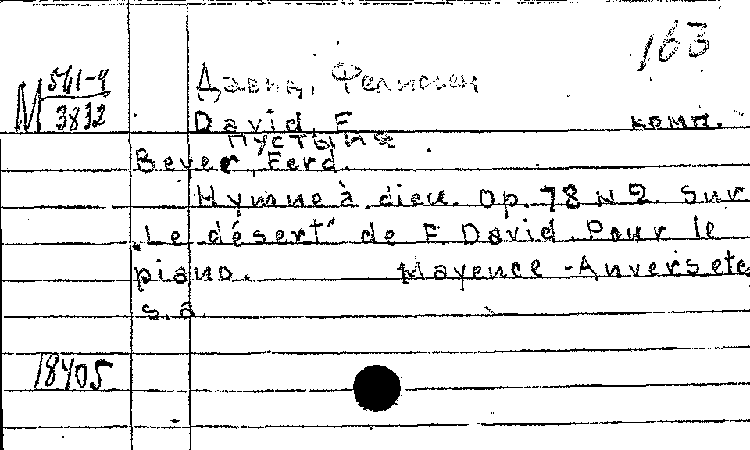 163
М 561-4
3832
Давид, Фелисьен
David, F. комп.
Пустыня
Beyer, Ferd.
Hymne à dieu. Op. 78 N 2. Sur
"Le désert" de F. David. Pour le
piano. Mayence - Anvers etc,
s. a.
18405